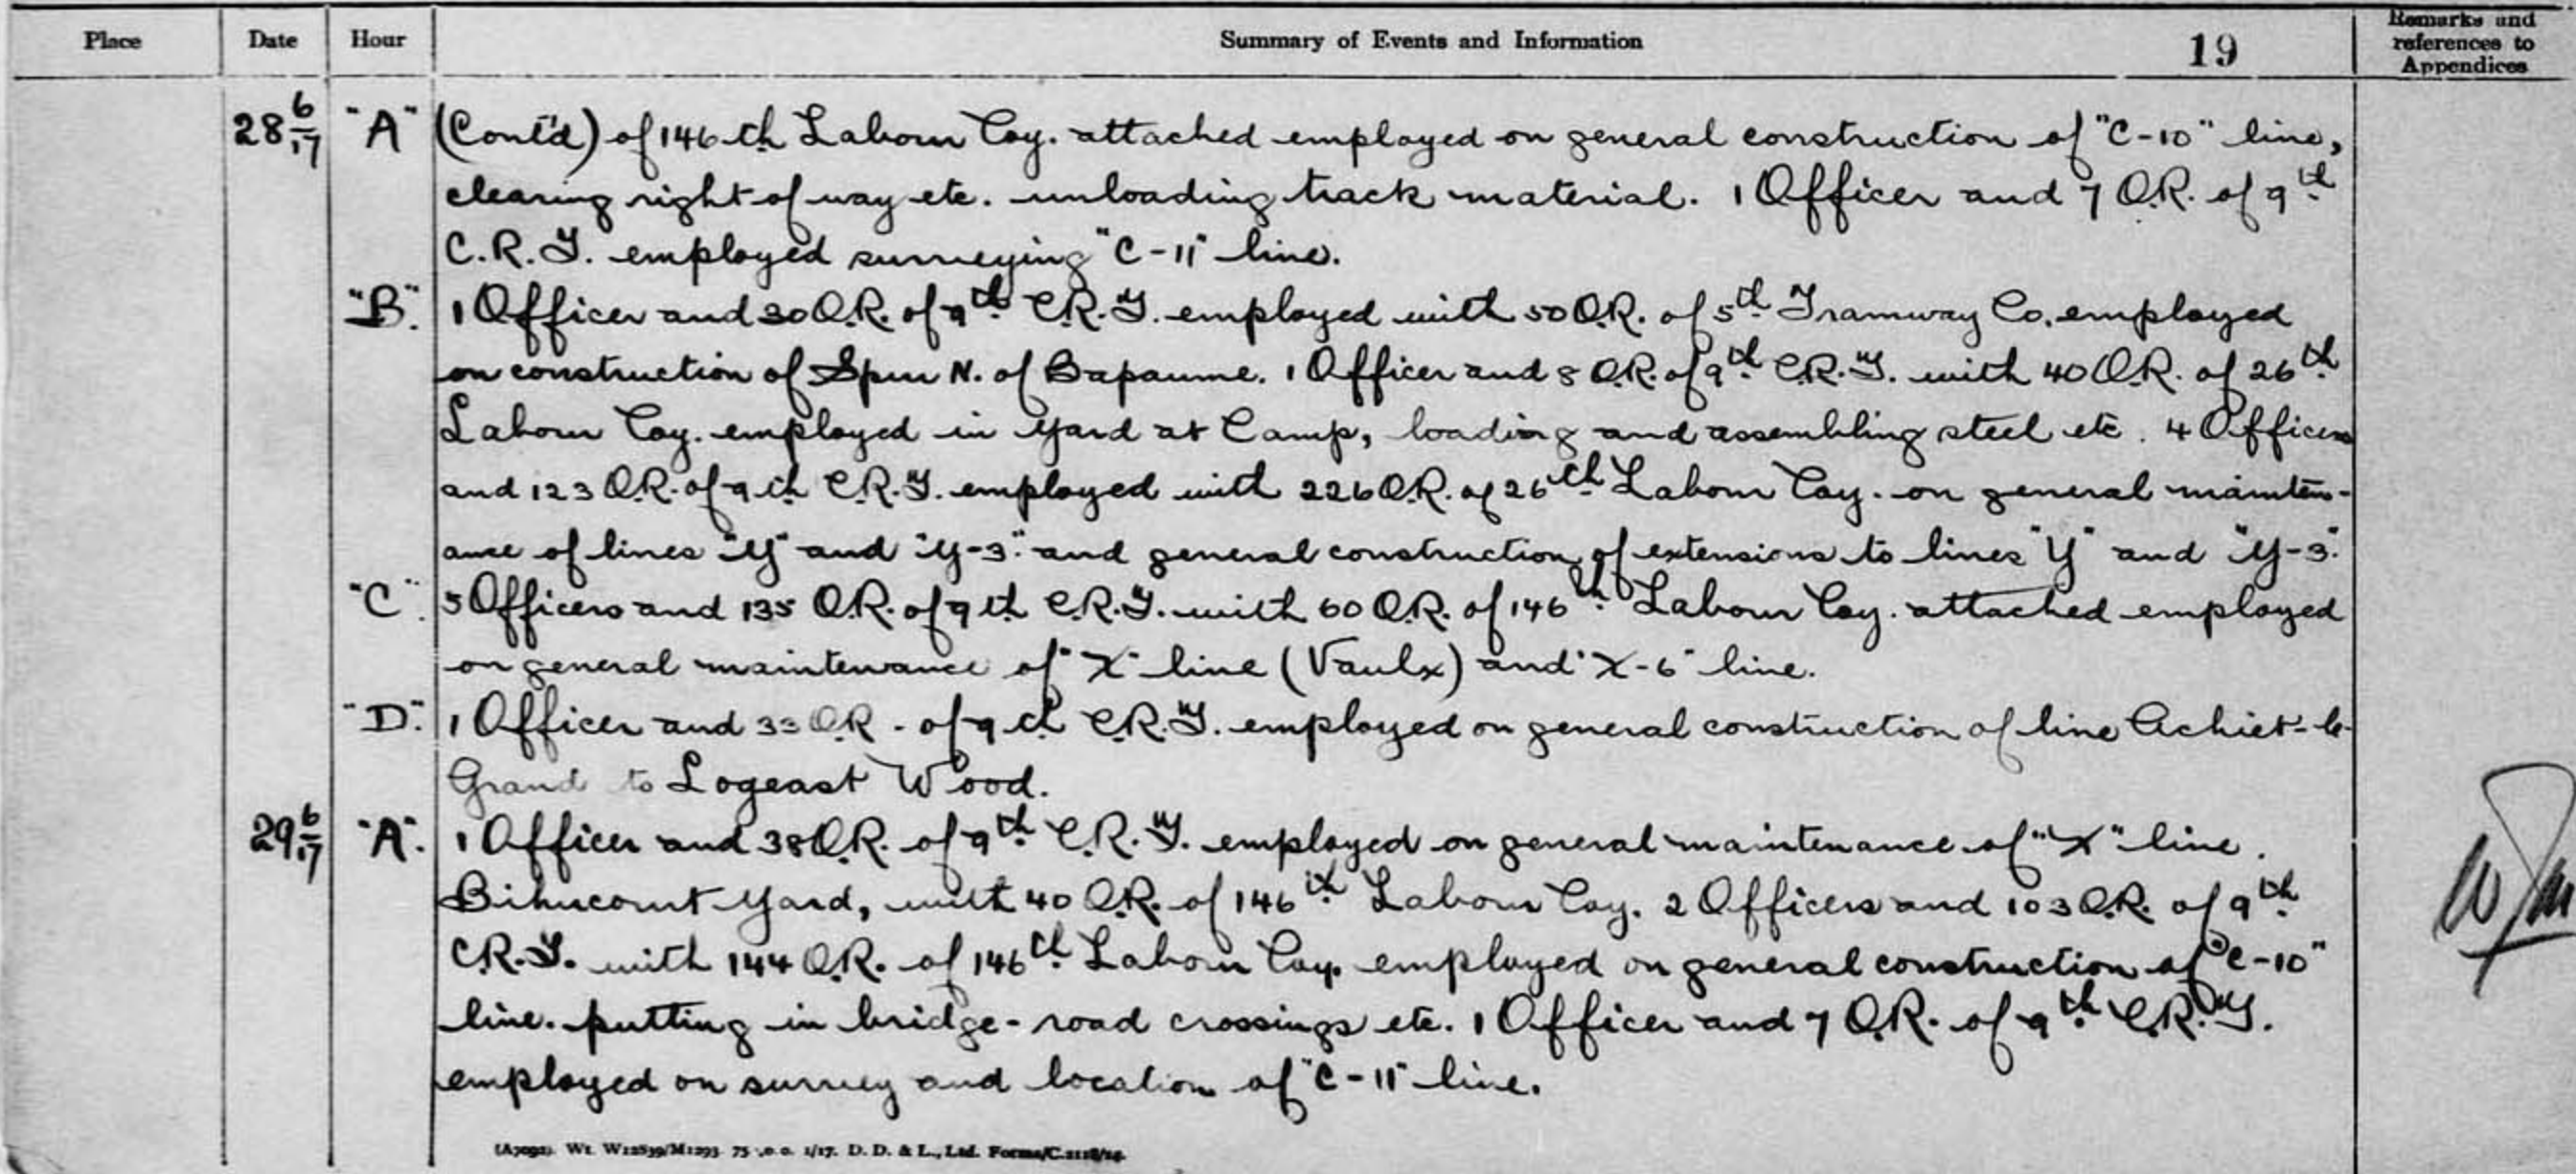 Place Date Hour Summary of Events and Information 19 Remarks and references to Appendices
28 6/17 "A" (Cont'd) of 146th Labour Coy. attached employed on general construction of "C-10" line,
clearing right of way etc. unloading track material. 1 Officer and 7 O.R. of 9th
C.R.T. employed surveying "C-11" line.
"B". 1 Officer and 30 O.R. of 9th C.R.T. employed with 50 O.R. of 5th Tramway Co. employed
on construction of Spur N. of Bapaume. 1 Officer and 8 O.R. of 9th C.R.T. with 40 O.R. of 26th
Labour Coy. employed in yard at Camp, loading and assembling steel etc. 4 Officers
and 123 O.R. of 9th C.R.T. employed with 226 O.R. of 26th Labour Coy. on general mainten-
ance of lines "Y" and "Y-3" and general construction of extensions to lines "Y" and "Y-3".
"C". 5 Officers and 135 O.R. of 9th C.R.T. with 60 O.R. of 146th Labour Coy. attached employed
on general maintenance of "X" line (Vaulx) and "X-6" line.
"D". 1 Officer and 33 O.R. of 9th C.R.T. employed on general construction of line Achiet-le-
Grand to Logeast Wood.
29 6/17 "A". 1 Officer and 38 O.R. of 9th C.R.T. employed on general maintenance of "X" line.
Bihucourt Yard, with 40 O.R. of 146th Labour Coy. 2 Officers and 103 O.R. of 9th
C.R.T. with 144 O.R. of 146th Labour Coy. employed on general construction of "C-10"
line. putting in bridge-road crossings etc. 1 Officer and 7 O.R. of 9th C.R.T.
employed on survey and location of "C-11" line.
Wt. D. D. & L., Ltd.